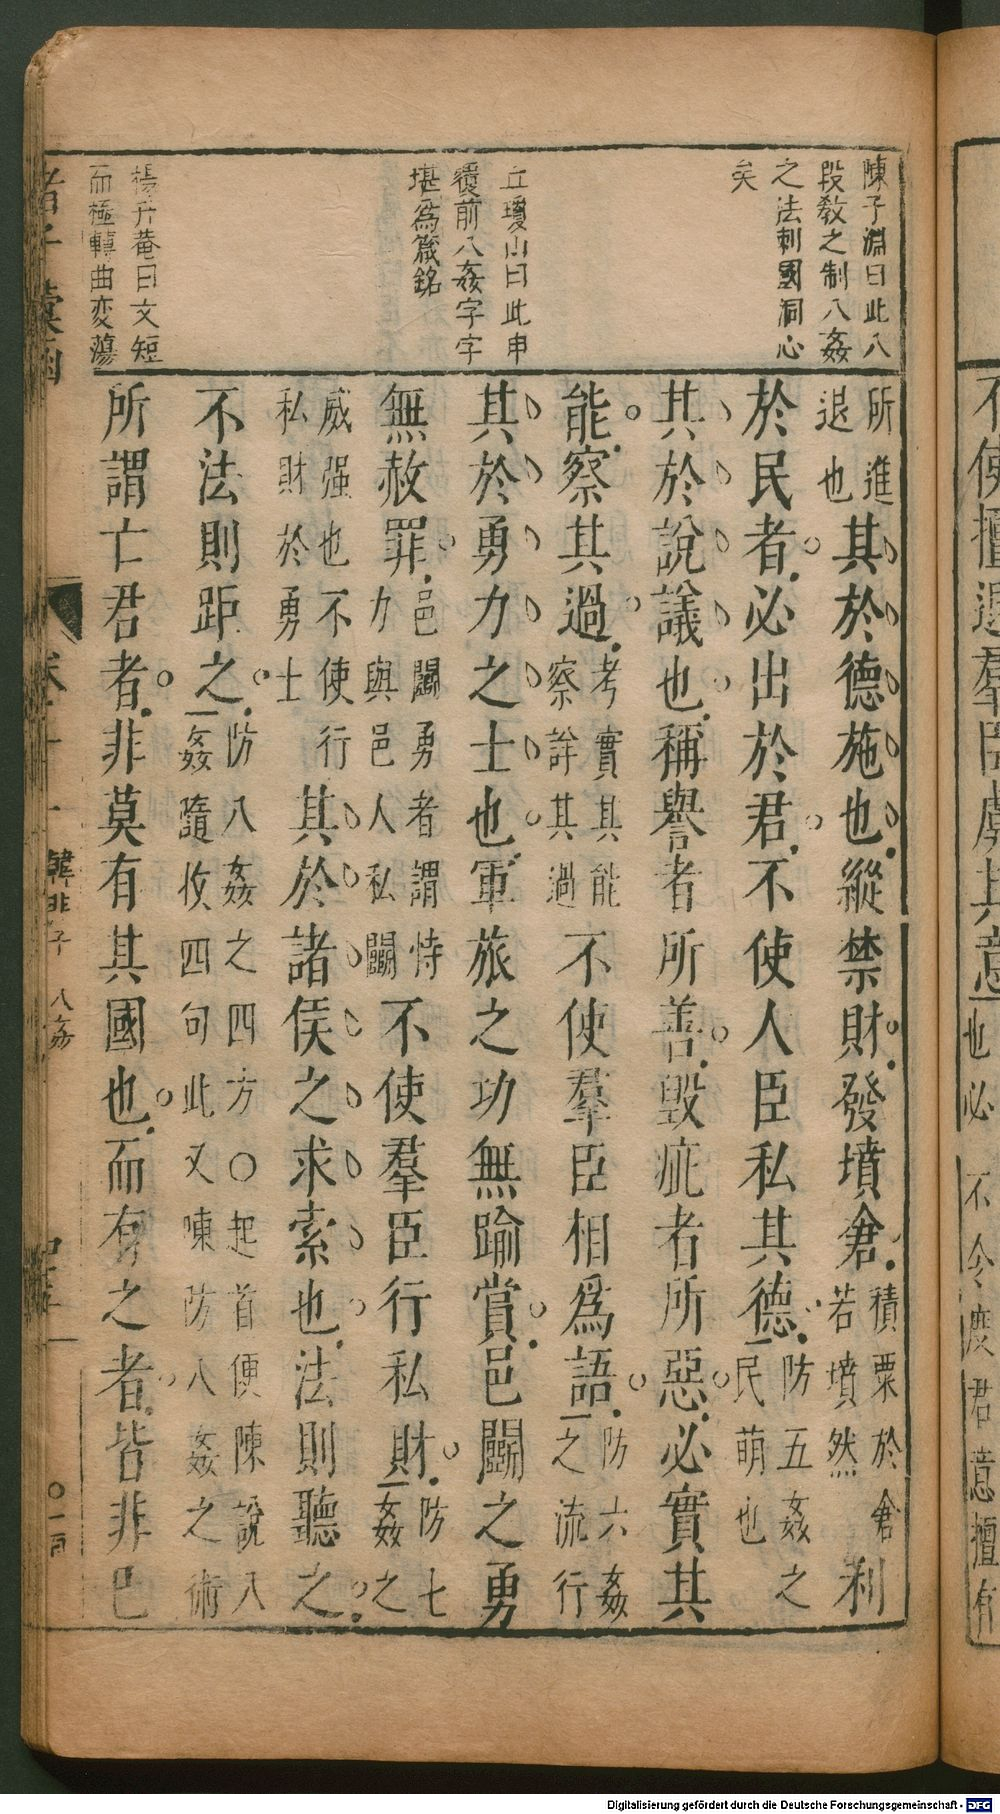 陳子淵曰此八
段教之制八姦
之法刺國洞心
矣
丘瓊山曰此申
覆前八姦字字
堪為箴銘
楊升菴曰文短
而極轉曲変蕩
所進
退也
其於德施也縱禁財發墳倉
積粟於倉
若墳然
利
於民者必出於君不使人臣私其德
防五姦之
民萌也
其於說議也稱譽者所善毀疵者所惡必實其
能察其過
考實其能
察詳其過
不使羣臣相為語
防六姦
之流行
其於勇力之士也軍旅之功無踰賞邑鬬之勇
無赦罪
邑鬬勇者謂恃
力與邑人私鬬
不使羣臣行私財
防七
姦之
威强也不使行
私財於勇士
其於諸侯之求索也法則聽之
不法則距之
防八姦之四方○起首便陳說八
姦隨收四句此又陳防八姦之術
所謂亡君者非莫有其國也而有之者皆非已
諸子彙函
卷十一
韓非子
八姦
不使擅退羣臣虞其意
也必
不令度君意擅有
Digitalisierung gefördert durch die Deutsche Forschungsgemeinschaft - DFG